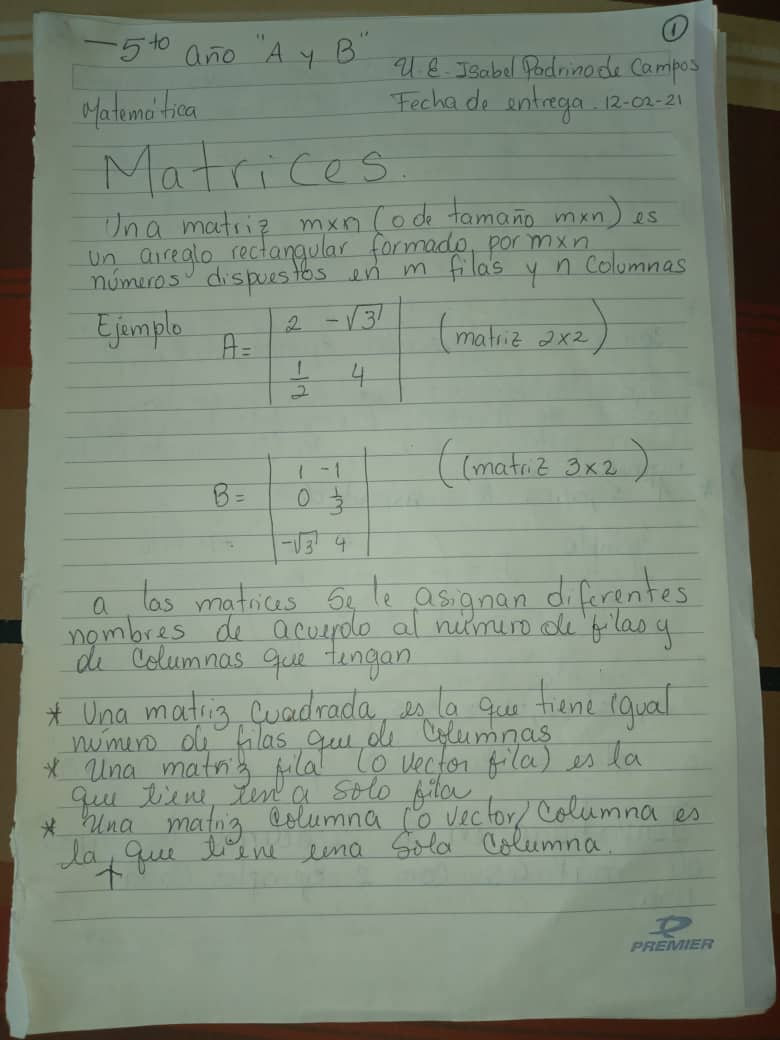 ①
— 5to año "A y B"
U.E. Isabel Padrino de Campos
Matemática
Fecha de entrega. 12-02-21
Matrices.
Una matriz mxn (o de tamaño mxn) es
un arreglo rectangular formado por mxn
números dispuestos en m filas y n columnas
Ejemplo
A= | 2 -√3 | (matriz 2x2)
| 1/2 4 |
B= | 1 -1 | ((matriz 3x2)
| 0 1/3 |
| -√3 4 |
a las matrices se le asignan diferentes
nombres de acuerdo al número de filas y
de columnas que tengan
* Una matriz cuadrada es la que tiene igual
número de filas que de columnas
* Una matriz fila (o vector fila) es la
que tiene una solo fila
* Una matriz columna (o vector) columna es
la que tiene una sola columna.
PREMIER